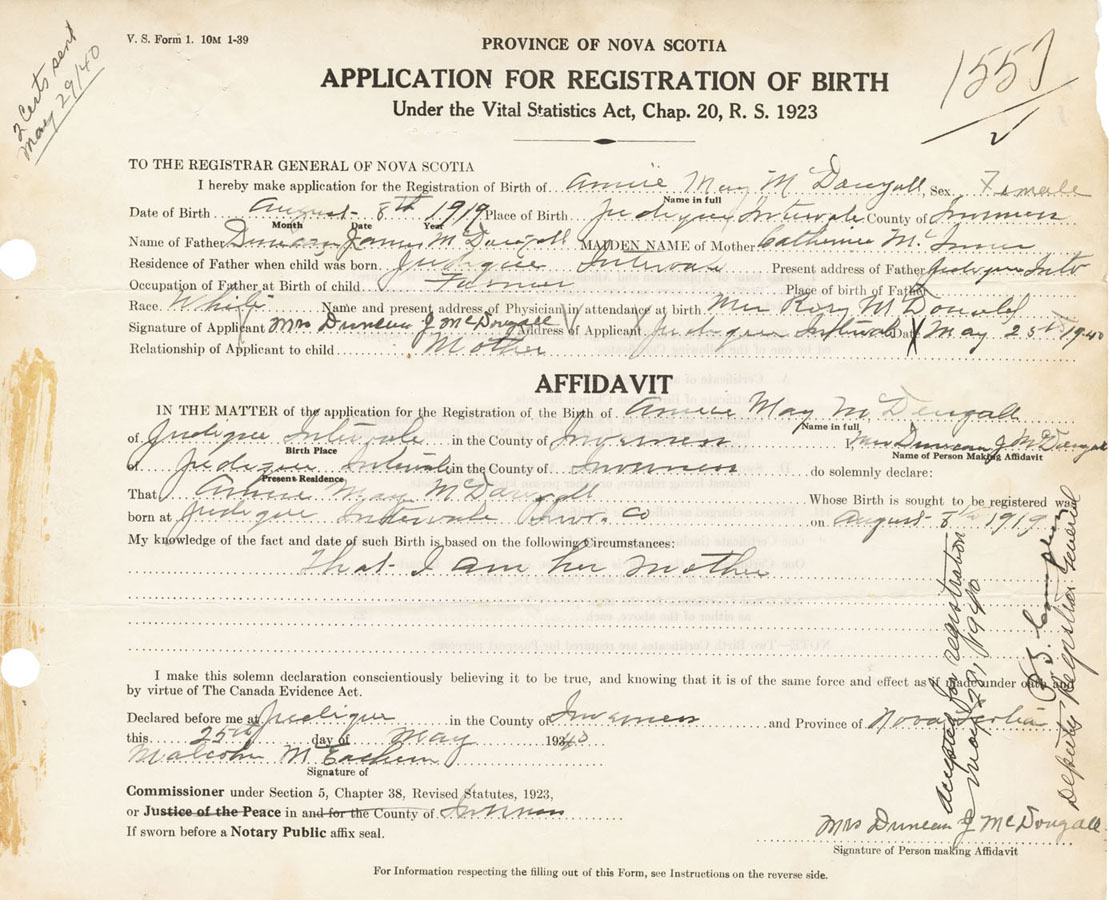 V. S. Form 1. 10M 1-39
2 Certs sent
May 29/40
1557
PROVINCE OF NOVA SCOTIA
APPLICATION FOR REGISTRATION OF BIRTH
Under the Vital Statistics Act, Chap. 20, R. S. 1923
TO THE REGISTRAR GENERAL OF NOVA SCOTIA
I hereby make application for the Registration of Birth of Annie May McDougall, Sex Female
Name in full
Date of Birth August 8th 1919 Place of Birth Judique Intervale County of Inverness
Month Date Year
Name of Father Duncan James McDougall MAIDEN NAME of Mother Catherine McInnis
Residence of Father when child was born Judique Intervale Present address of Father Judique Inter
Occupation of Father at Birth of child Farmer Place of birth of Father
Race White Name and present address of Physician in attendance at birth Mrs Rory McDonald
Signature of Applicant Mrs Duncan J McDougall Address of Applicant Judique Intervale Date May 25th 1940
Relationship of Applicant to child Mother
AFFIDAVIT
IN THE MATTER of the application for the Registration of the Birth of Annie May McDougall
Name in full
of Judique Intervale in the County of Inverness I, Mrs Duncan J McDougall
Birth Place Name of Person Making Affidavit
of Judique Intervale in the County of Inverness do solemnly declare:
Present Residence
That Annie May McDougall Whose Birth is sought to be registered was
born at Judique Intervale Inv. Co on August 8th 1919
My knowledge of the fact and date of such Birth is based on the following Circumstances:
That I am her mother
I make this solemn declaration conscientiously believing it to be true, and knowing that it is of the same force and effect as if made under oath and
by virtue of The Canada Evidence Act.
Declared before me at Judique in the County of Inverness and Province of Nova Scotia
this 25th day of May 1940
Malcolm McEachern
Signature of
Commissioner under Section 5, Chapter 38, Revised Statutes, 1923,
or Justice of the Peace in and for the County of Inverness
If sworn before a Notary Public affix seal.
Accepted for registration
May 28, 1940
Deputy Registrar General
Mrs Duncan J McDougall
Signature of Person making Affidavit
For Information respecting the filling out of this Form, see Instructions on the reverse side.